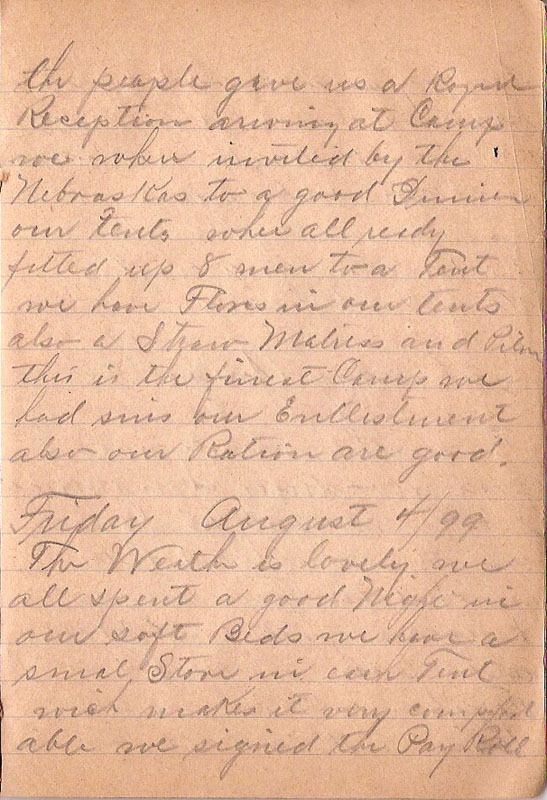 the people gave us a Royal
Reception arriving at Camp
we wher invited by the
Nebraskas to a good Dinner
our tents wher all redy
fitted up 8 men to a Tent
we have Flores in our tents
also a Straw Matress and Pilow
this is the finest Camp we
had sins our Enllestment
also our Ration are good.
Friday August 4/99
The Weath is lovely we
all spent a good Night in
our soft Beds we have a
smal Stove in each Tent
wich makes it very comfort
able we signed the Pay Roll